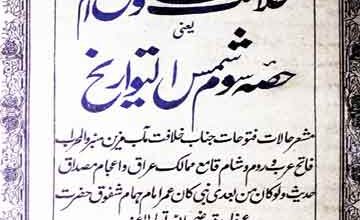 یعنی
حصہ سوم شمس التواریخ
مشعر حالات فتوحات جناب خلافت مآب مزین منبر والمحراب
فاتح عرب و روم و شام قامع ممالک عراق و اعجام مصداق
حدیث ولوکان من بعدی نبی کان عمر امام ہمام شفوق حضرت